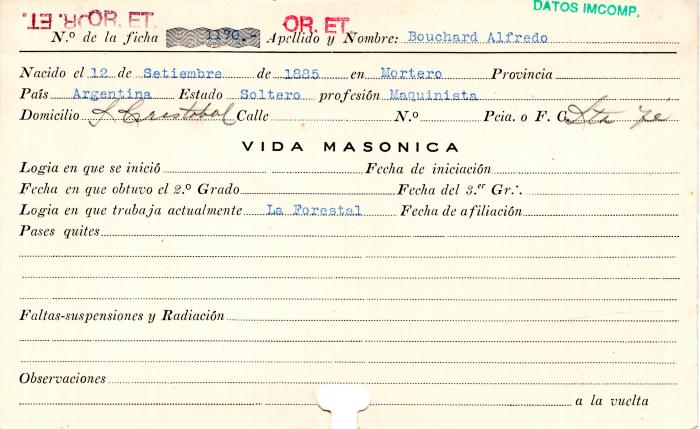 DATOS IMCOMP.
OR. ET. OR. ET. OR. ET.
N.º de la ficha 1170.- Apellido y Nombre: Bouchard Alfredo
Nacido el 12 de Setiembre de 1885 en Mortero Provincia
País Argentina Estado Soltero profesión Maquinista
Domicilio S Cristobal Calle N.º Pcia. o F. C. Sta Fé
VIDA MASONICA
Logia en que se inició Fecha de iniciación
Fecha en que obtuvo el 2.º Grado Fecha del 3.er Gr∴
Logia en que trabaja actualmente La Forestal Fecha de afiliación
Pases quites
Faltas-suspensiones y Radiación
Observaciones
a la vuelta